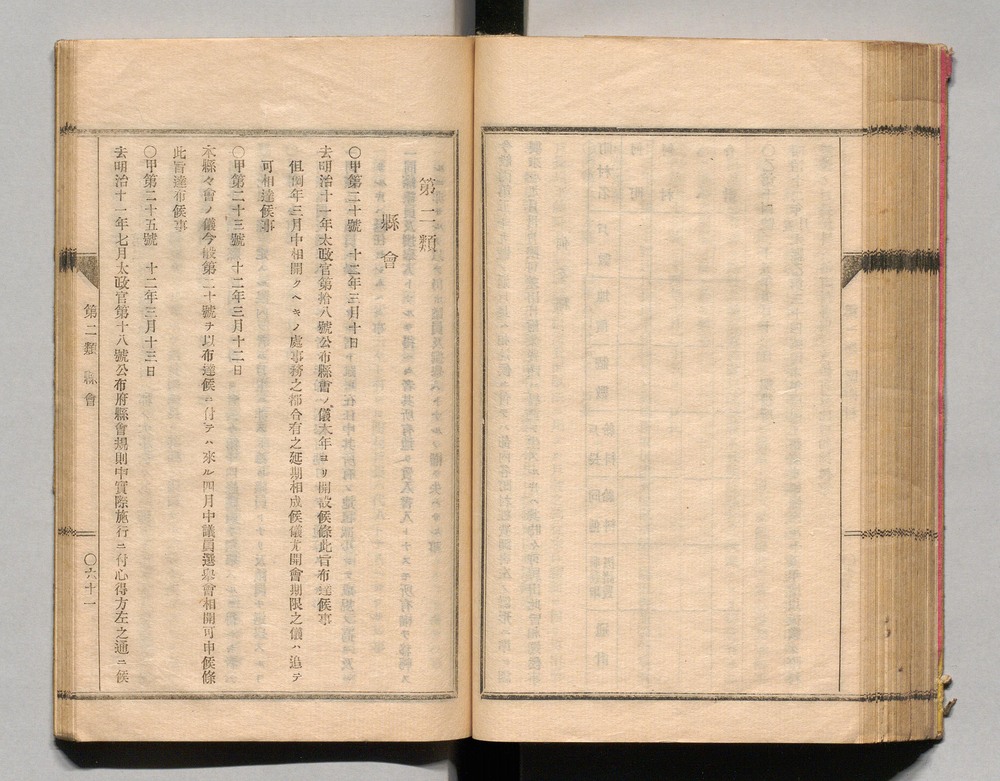 第二類
縣會
〇甲第二十號　十二年三月十日
去明治十一年太政官第拾八號公布縣會ノ儀本年ヨリ開設候條此旨布達候事
但例年三月中相開クヘキノ處事務之都合有之延期相成候儀尤開會期限之儀ハ追テ
可相達候事
〇甲第二十三號　十二年三月十二日
本縣々會ノ儀今般第二十號ヲ以布達候ニ付テハ來ル四月中議員選擧會相開可申候條
此旨達布候事
〇甲第二十五號　十二年三月十三日
去明治十一年七月太政官第十八號公布府縣會規則中實際施行ニ付心得方左之通ニ候
第二類　縣會
〇六十一